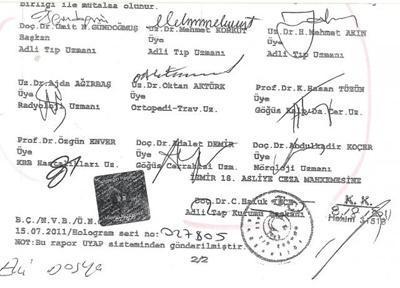 birliği ile mütalaa olunur.
Doç.Dr.Ümit N.GÜNDOĞMUŞ Uz.Dr.Mehmet KORKUT Uz.Dr.H.Mehmet AKIN
Başkan Üye Üye
Adli Tıp Uzmanı Adli Tıp Uzmanı Adli Tıp Uzmanı
Uz.Dr.Ajda AĞIRBAŞ Uz.Dr.Oktan AKTÜRK Prof.Dr.K.Hasan TÖZÜN
Üye Üye Üye
Radyoloji Uzmanı Ortopedi-Trav.Uz. Göğüs Kalp Da.Cer.Uz.
Prof.Dr.Özgün ENVER Doç.Dr.Adalet DEMİR Doç.Dr.Abdulkadir KOÇER
Üye Üye Üye
KBB Hastalıkları Uz. Göğüs Cerrahisi Uzm. Nöroloji Uzmanı
İZMİR 18. ASLİYE CEZA MAHKEMESİNE
Doç.Dr.C.Haluk K. K.
Adli Tıp Kurumu Başkanı
B.C./M.V.B./Ü.N.
15.07.2011/Hologram seri no: 027805
NOT:Bu rapor UYAP sisteminden gönderilmiştir.
2/2